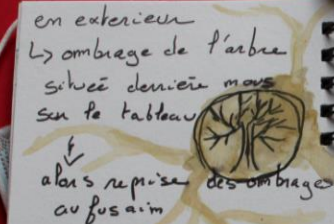 en exterieur
↳ ombrage de l'arbre
situeé derrière nous
sur le tableau
alors reprise des ombrages
au fusaim